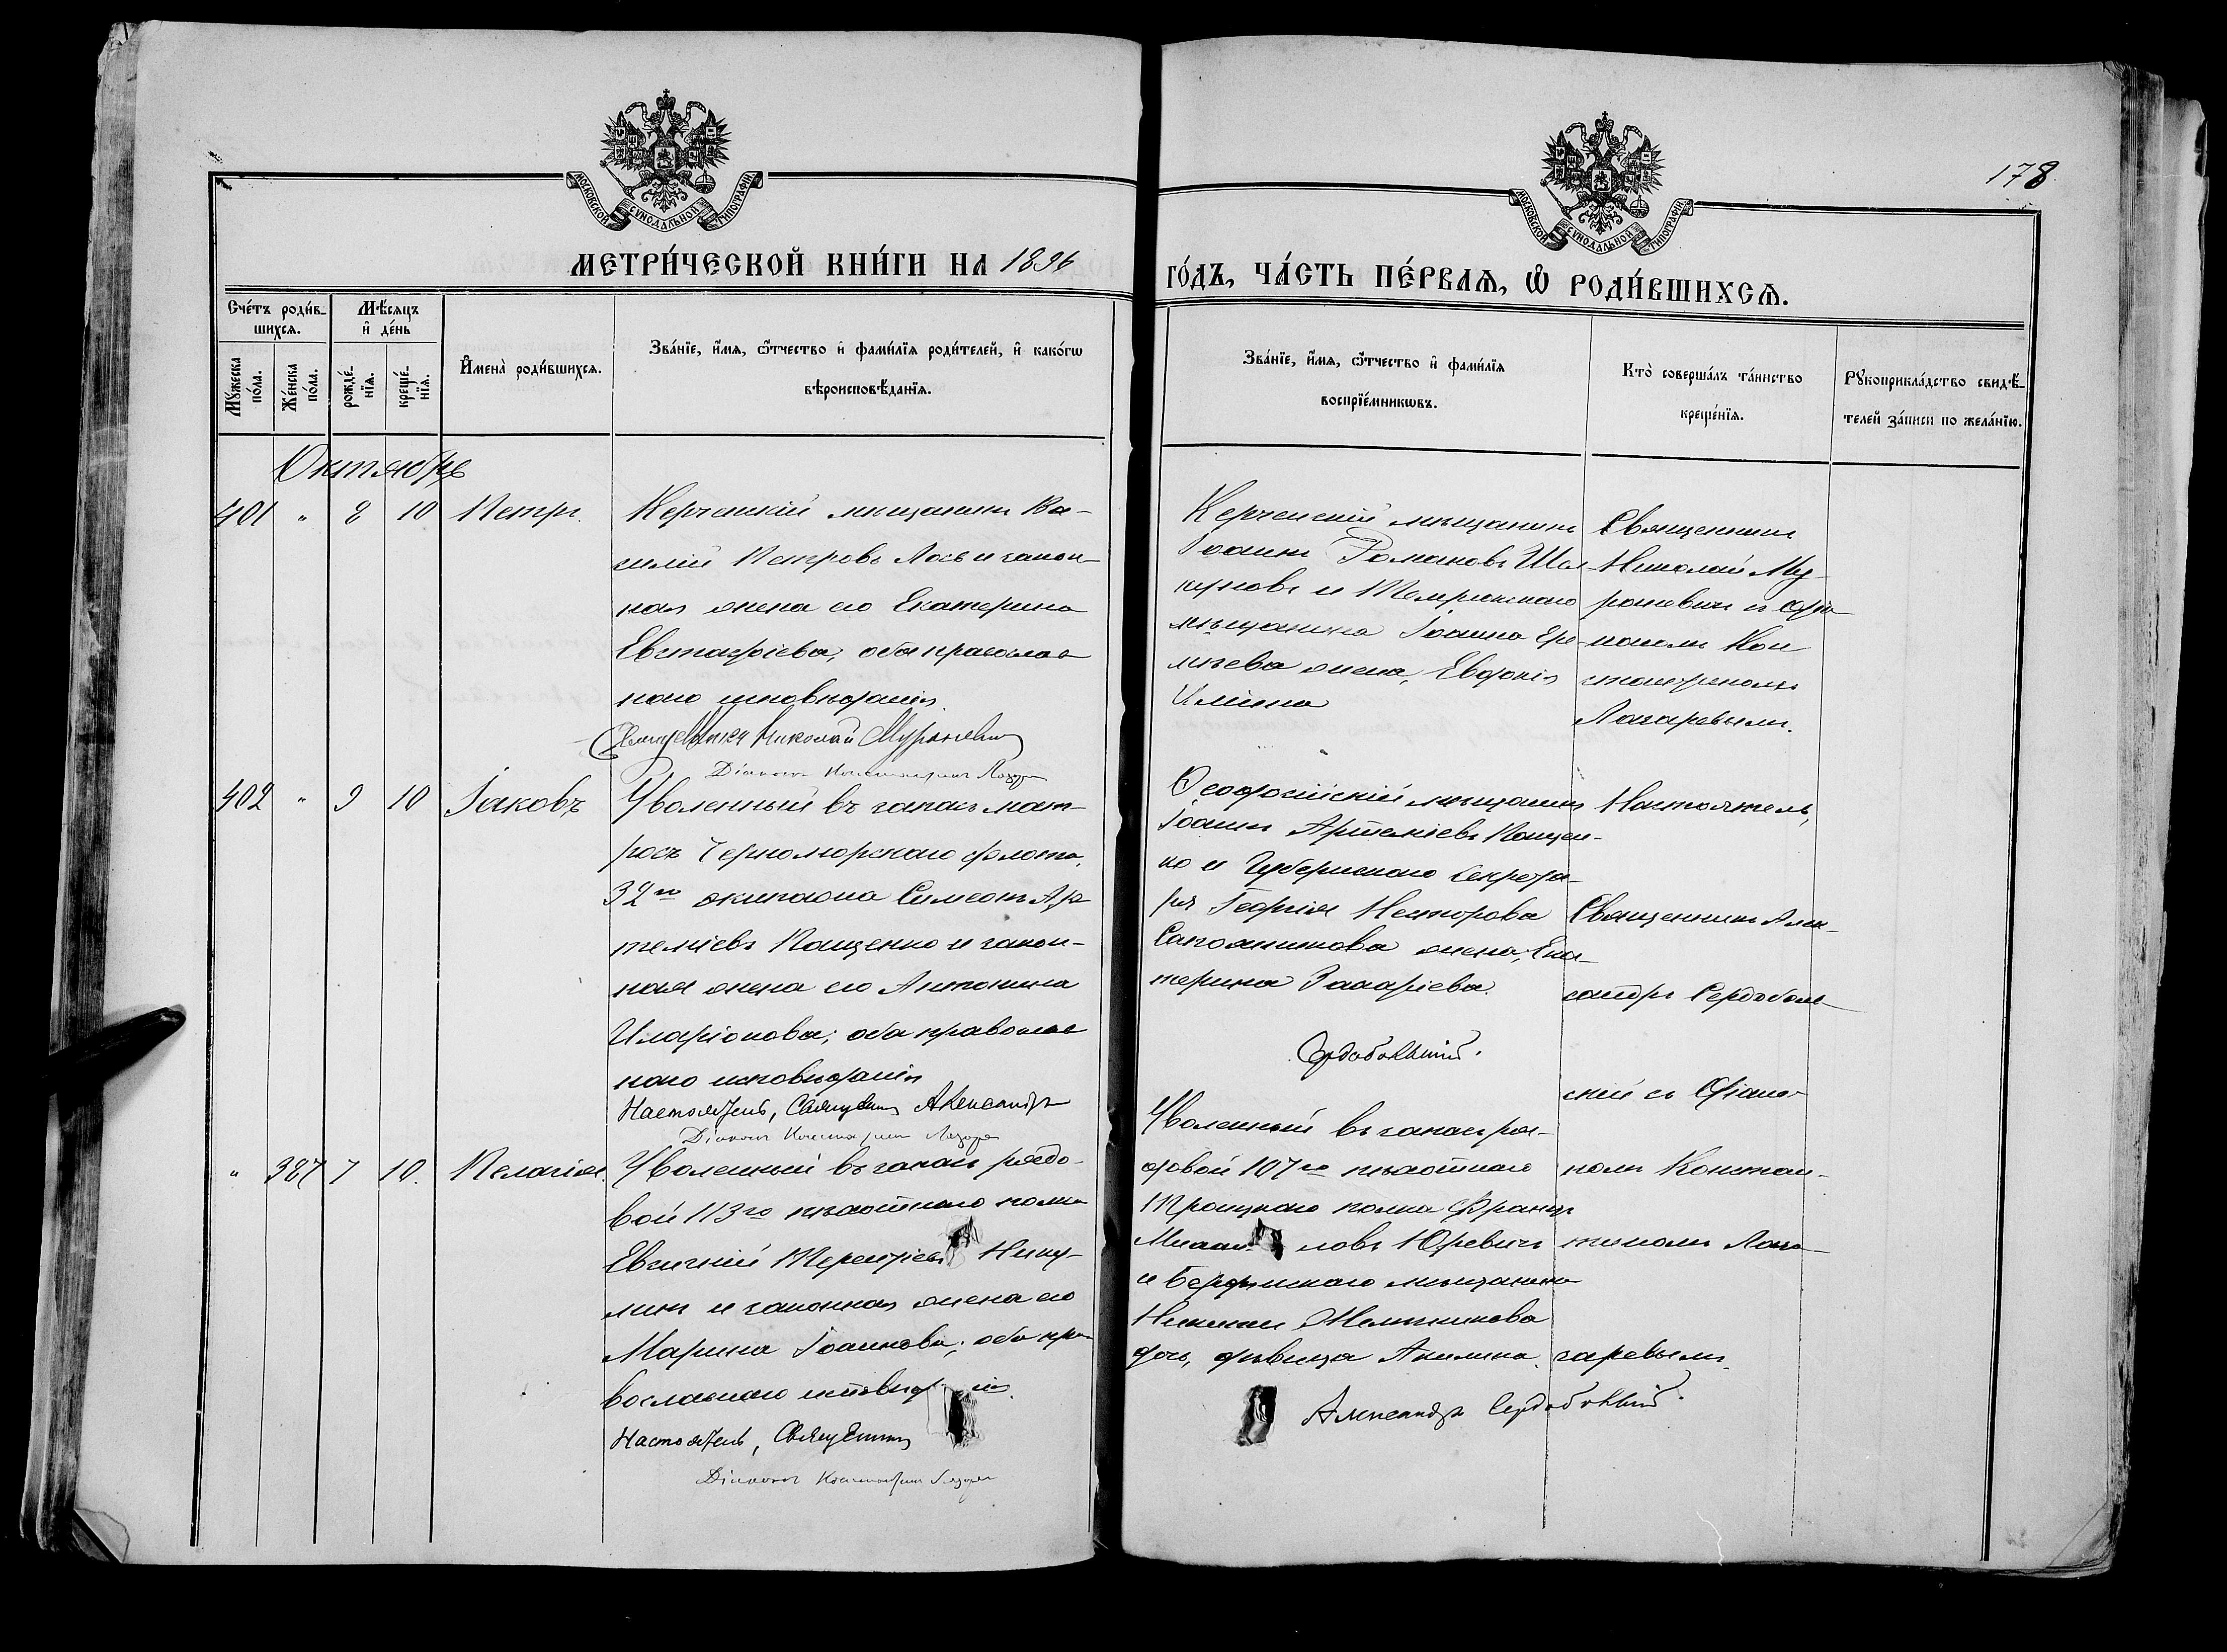 178
МОСКОВСКОЙ СУНОДАЛЬНОЙ ТИПОГРАФІИ
МОСКОВСКОЙ СУНОДАЛЬНОЙ ТИПОГРАФІИ
МЕТРИ́ЧЕСКОЙ КНИ́ГИ НА 1896
ГО́ДЪ, ЧА́СТЬ ПЕ́РВАѦ, Ѽ РОДИ́ВШИХСѦ.
Сче́тъ роди́в-
шихсѧ.
Мѣ́сѧцъ
и҆ де́нь
Мꙋ́жеска
по́ла.
Же́нска
по́ла.
рожде́-
нїѧ.
креще́-
нїѧ.
И҆мена̀ роди́вшихсѧ.
Зва́нїе, и҆́мѧ, ѻ҆́тчество и҆ фами́лїѧ роди́телей, и҆ како́гѡ
вѣроисповѣ́данїѧ.
Зва́нїе, и҆́мѧ, ѻ҆́тчество и҆ фами́лїѧ
воспрїе́мникѡвъ.
Кто̀ соверша́лъ та́инство
креще́нїѧ.
Рꙋкоприкла́дство свидѣ́-
телей за́писи по жела́нїю.
Октябрь
401 " 8 10 Петръ.
Керченскій мѣщанинъ Ва-
силій Петровъ Лось и закон-
ная жена его Екатерина
Евстафіева, оба православ
наго исповѣданія.
Священникъ Николай Муракевич
Діаконъ Константинъ Лазаре
Керченскій мѣщанинъ
Іоаннъ Романовъ
и Темрюкскаго
мѣщанина Іоанна Ере-
мѣева жена, Евдокія
Ильина
Священникъ
Николай Му-
ракевичъ и діа-
кономъ Кон
стантиномъ
Лазаревымъ.
402 " 9 10 Іаковъ
Уволенный въ запасъ мат-
росъ Черноморскаго флота,
32го экипажа Симеонъ Ар-
теміевъ Кащенко и закон-
ная жена его Антонина
Иларіонова; оба православ
наго исповѣданія
Настоятель, Священникъ Александръ
Діаконъ Константинъ Лазаре
Ѳеодосійскій мѣщанинъ
Іоаннъ Артеміевъ Кащен-
ко и Губернскаго Секрета-
ря Георгія Несторова
Сапожникова жена, Ека-
терина Захаріева.
Сердобольскій.
Настоятель,
Священникъ Алек-
сандръ Сердоболь-
скій съ діако-
номъ Констан-
тиномъ Лаза-
заревымъ.
" 387 7 10. Пелагія.
Уволенный въ запасъ рядо-
вой 113го пѣхотнаго полка
Евгеній Терентіевъ Нику-
линъ и законная жена его
Марина Іоаннова; оба пра-
вославнаго исповѣданія.
Настоятель, Священникъ
Діаконъ Константинъ Лазаре
Уволенный въ запасъ ря-
довой 107го пѣхотнаго
Троицкаго полка Францъ
Михайловъ Юревичъ
и Бердянскаго мѣщанина
Никиты Мельникова
дочь, дѣвица Акилина.
Александръ Сердобольскій.